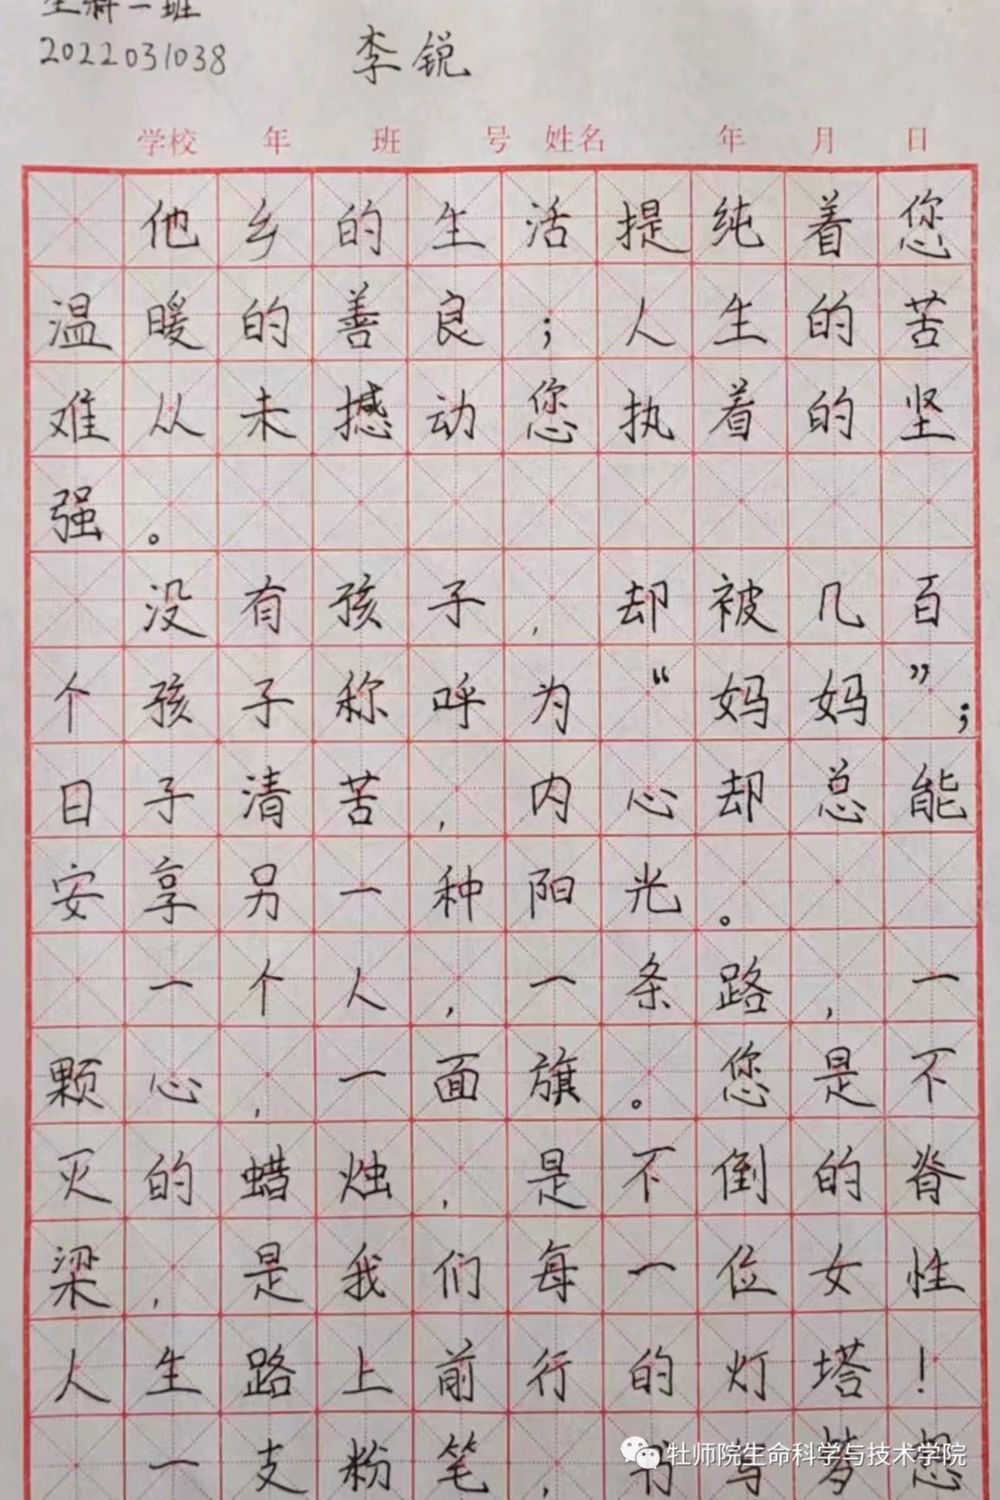 生科一班
2022031038 李锐
学校 年 班 号 姓名 年 月 日
他乡的生活提纯着您
温暖的善良；人生的苦
难从未撼动您执着的坚
强。
没有孩子，却被几百
个孩子称呼为“妈妈”；
日子清苦，内心却总能
安享另一种阳光。
一个人，一条路，一
颗心，一面旗。您是不
灭的蜡烛，是不倒的脊
梁，是我们每一位女性
人生路上前行的灯塔！
一支粉笔，书写梦想
牡师院生命科学与技术学院